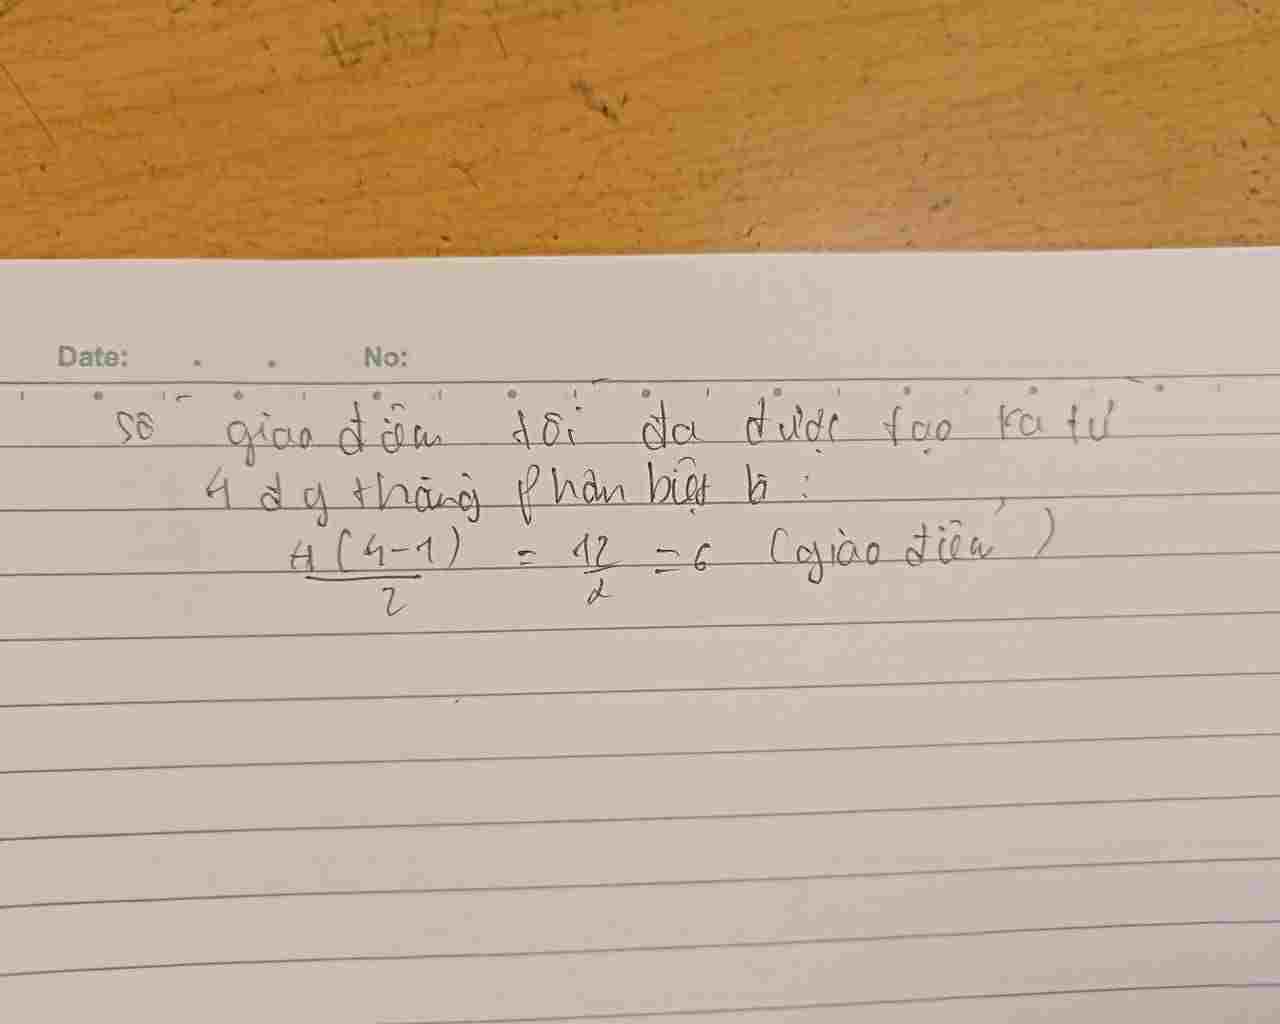 Date: . . No:
số giao điểm tối đa được tạo ra từ
4 đg thẳng phân biệt là :
4(4-1)/2 = 12/2 = 6 (giao điểm)